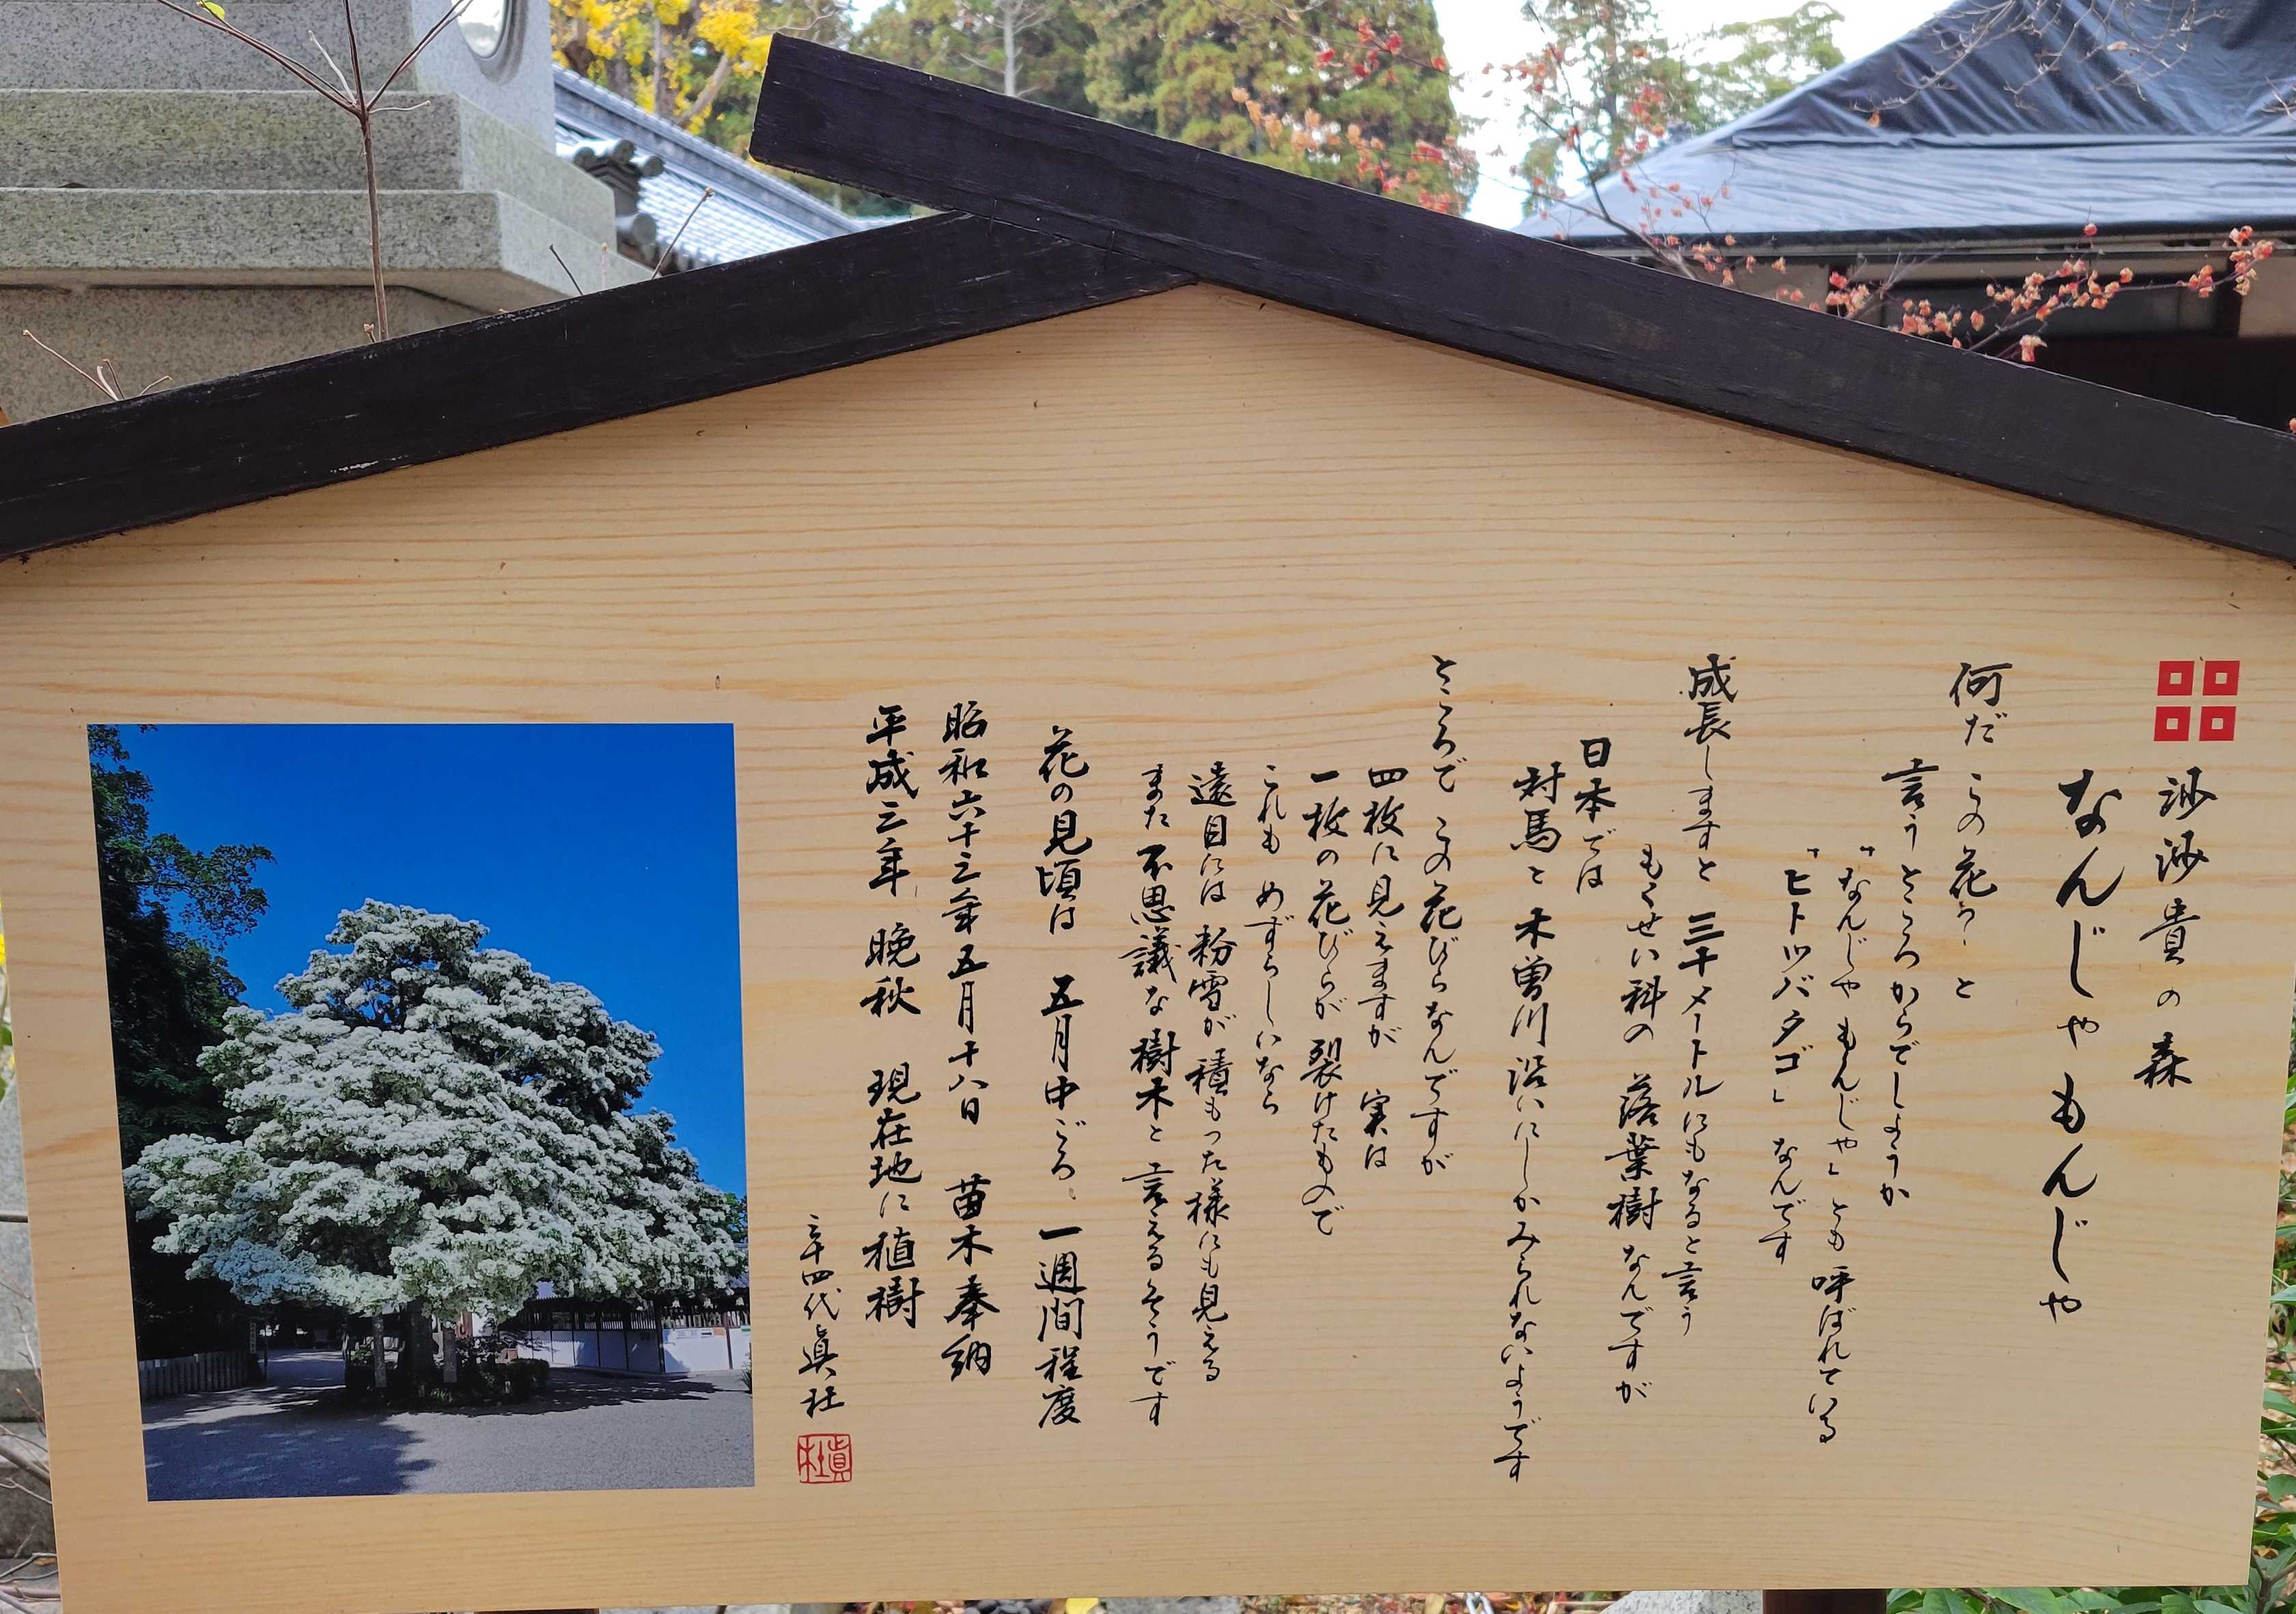 沙沙貴の森
なんじゃもんじゃ
何だ この花？ と
言うところからでしょうか
「なんじゃ もんじゃ」とも 呼ばれている
「ヒトツバタゴ」なんです
成長しますと 三十メートルにもなると言う
もくせい科の 落葉樹なんですが
日本では
対馬と 木曽川沿いにしかみられないようです
ところで この花びらなんですが
四枚に見えますが 実は
一枚の花びらが 裂けたもので
これも めずらしいなら
遠目には 粉雪が 積もった様にも見える
また 不思議な 樹木と 言えるそうです
花の見頃は 五月中ごろ、一週間程度
昭和六十三年五月十八日 苗木奉納
平成三年 晩秋 現在地に植樹
三十四代 眞社
眞社